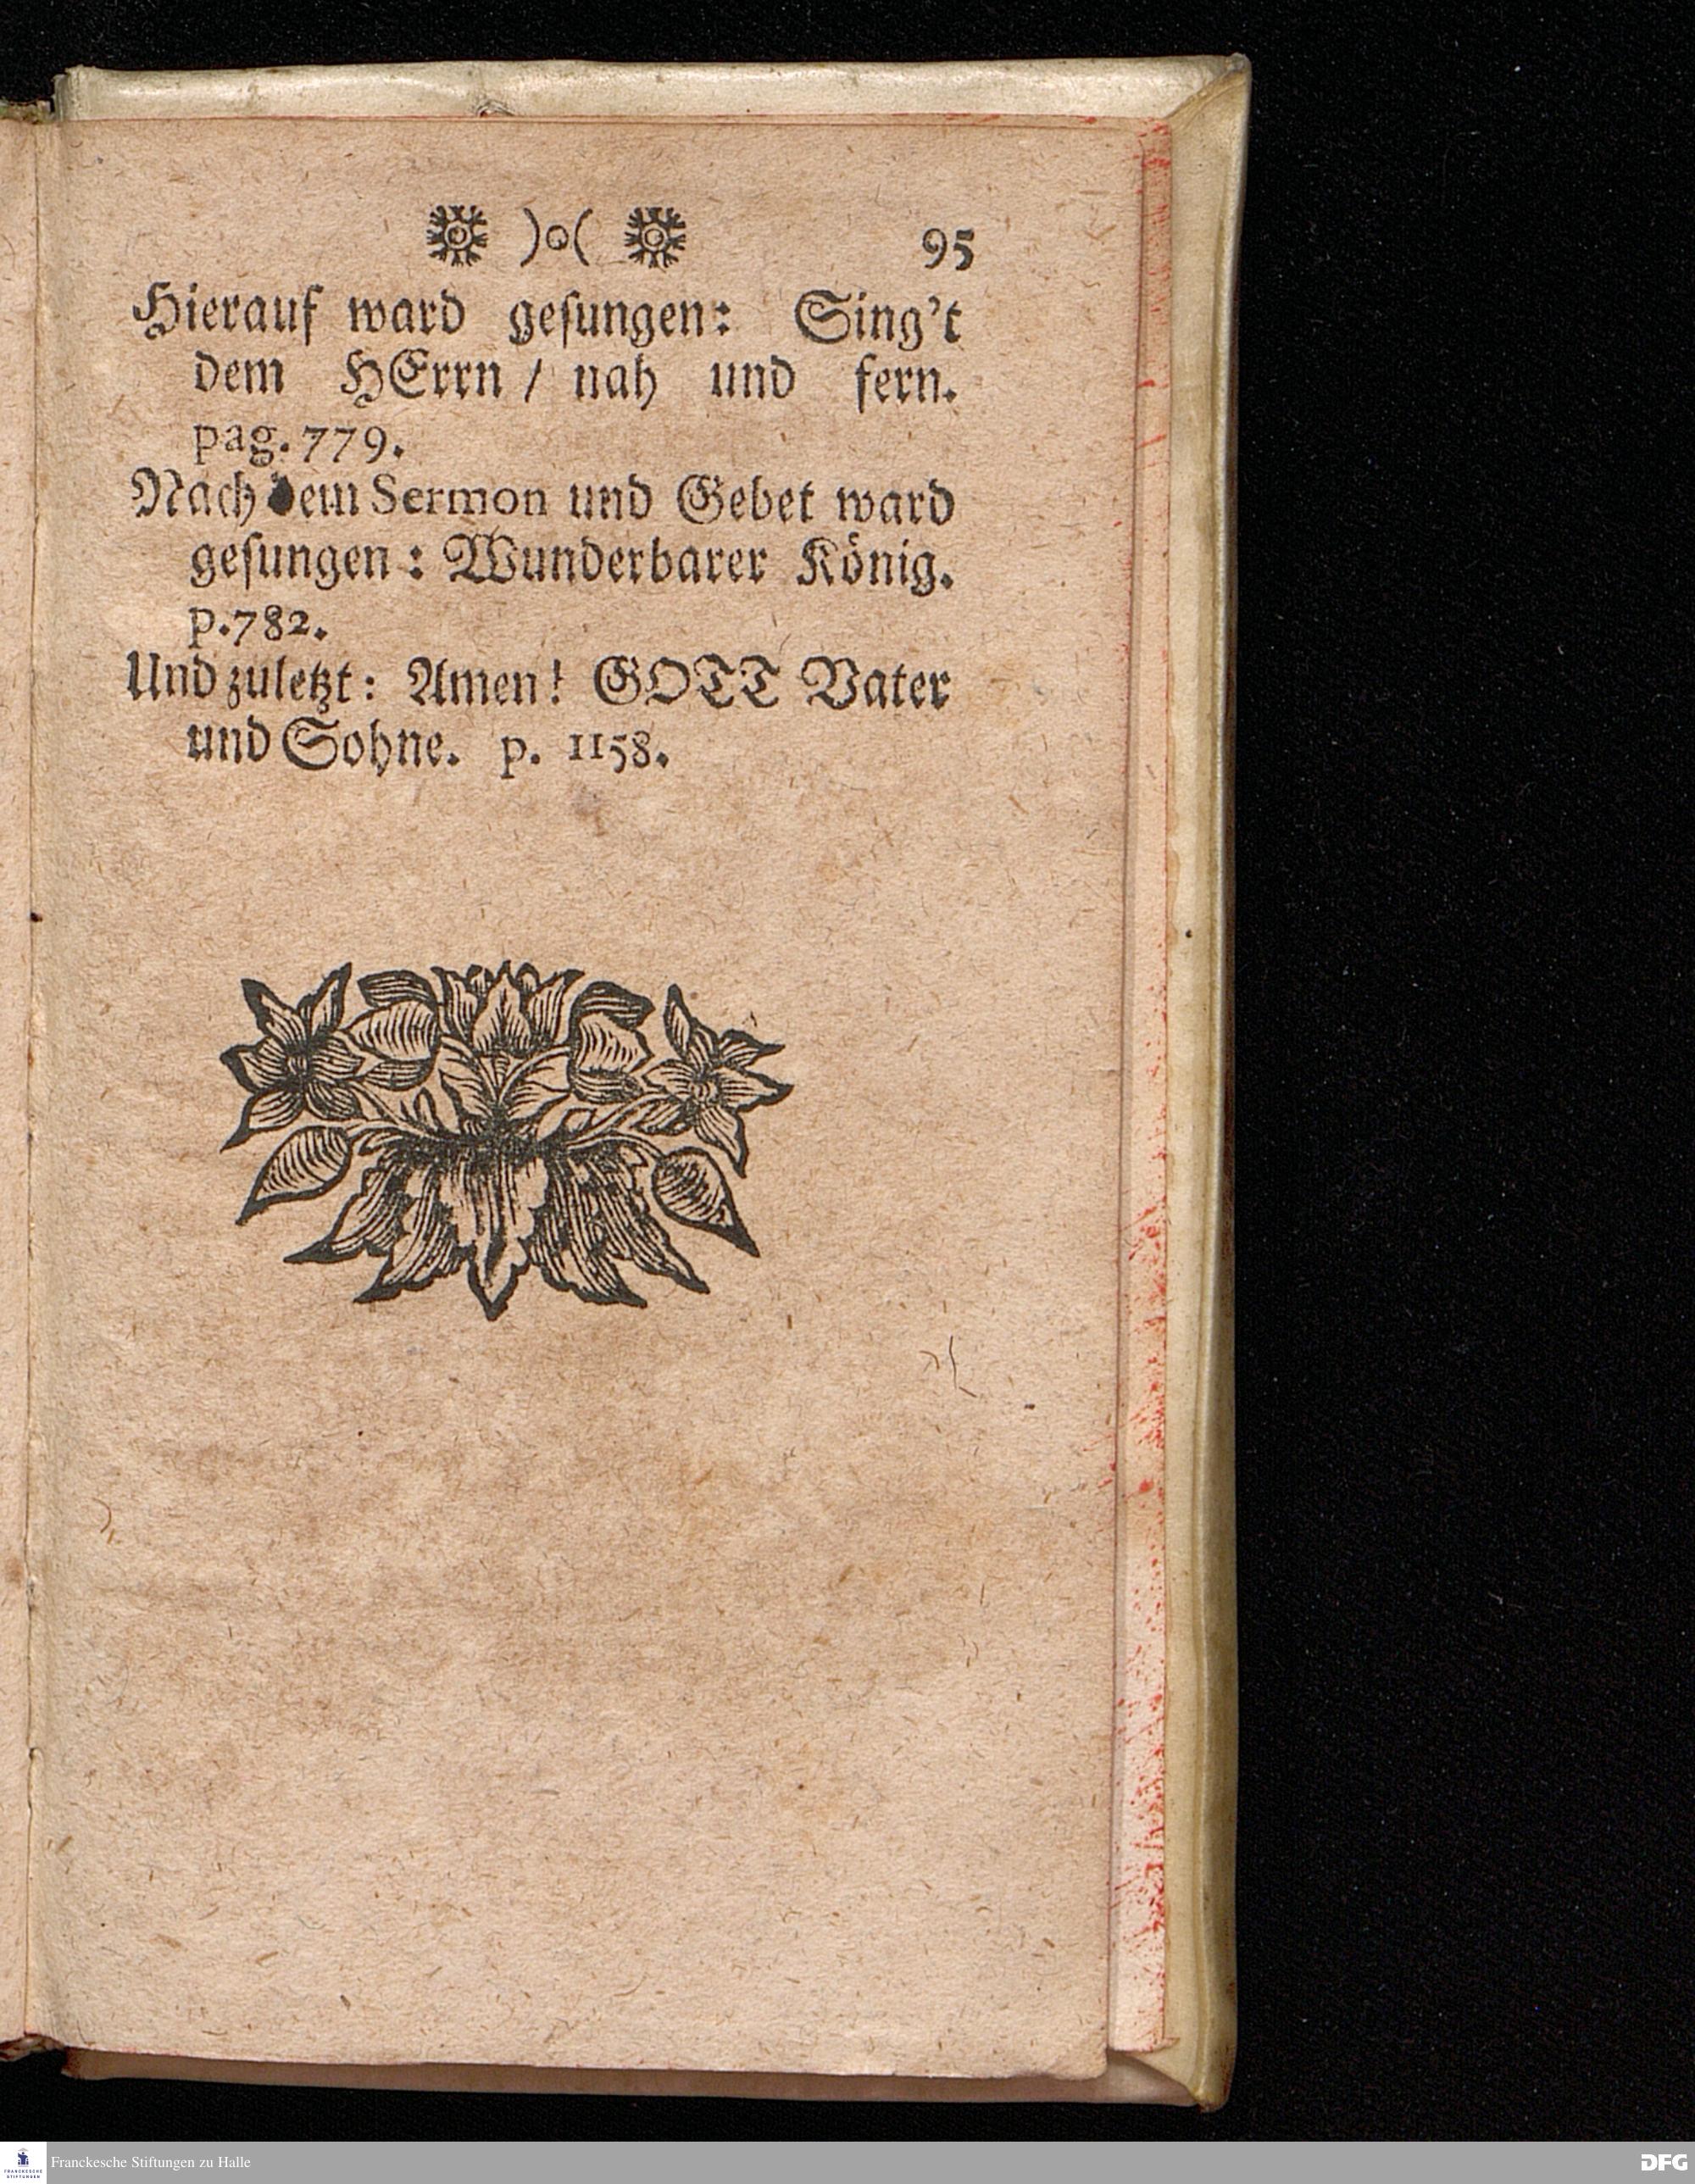 )o( 95
Hierauf ward geſungen: Sing't
dem HErrn / nah und fern.
pag. 779.
Nach dem Sermon und Gebet ward
geſungen: Wunderbarer König.
p. 782.
Und zuletzt: Amen! GOTT Vater
und Sohne. p. 1158.
FRANCKESCHE STIFTUNGEN
Franckesche Stiftungen zu Halle
DFG